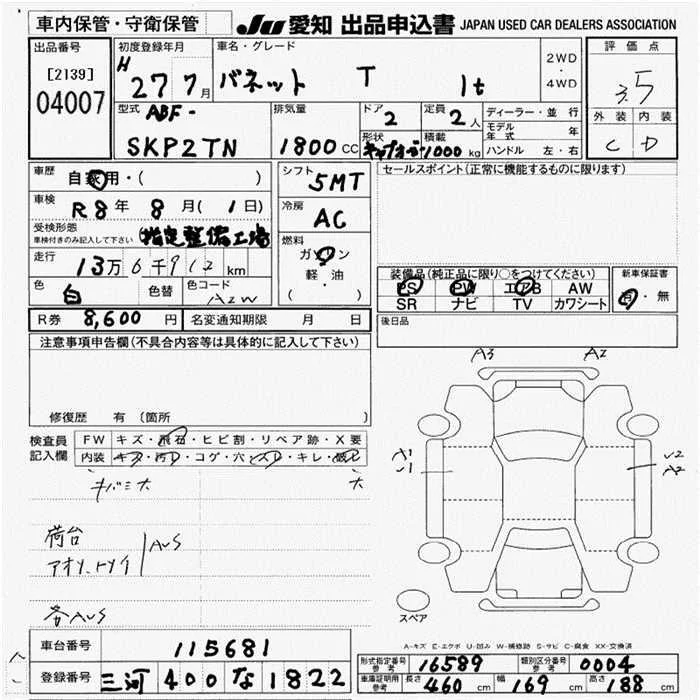 車内保管・守衛保管
JU 愛知 出品申込書 JAPAN USED CAR DEALERS ASSOCIATION
出品番号
[2139]
04007
初度登録年月
H 27 7月
車名・グレード
バネット T 1t
2WD
・
4WD
評価点
3.5
外装 内装
C D
型式 ABF-
SKP2TN
排気量
1800 CC
ドア 2
定員 2人
形状 キャブオーバー
積載 1000 kg
ディーラー・並行
モデル年式 年
ハンドル 左・右
車歴 自家用・( )
車検 R8年 8月( 1日)
受検形態
車検付きのみ記入して下さい
(指定整備工場
走行 13万6千912km
色 白 色替 色コード AZW
シフト 5MT
冷房 AC
燃料
ガソリン
軽・油
( ・ )
セールスポイント(正常に機能するものに限ります)
装備品(純正品に限り○をつけてください)
PS PW エアB AW
SR ナビ TV カワシート
新車保証書
有・無
R券 8,600 円 名変通知期限 月 日
後日品
注意事項申告欄(不具合内容等は具体的に記入して下さい)
修復歴 有 (箇所 )
検査員
記入欄
FW キズ・飛石・ヒビ割・リペア跡・X要
内装 キズ・汚れ・コゲ・穴・スレ・キレ・破レ
A3 A2
A1
U1
U2
A2
キバミ大
荷台
アオリ、トリイ
AUS
各AUS
スペア
A-キズ E-エクボ U-凹み W-補修跡 S-サビ C-腐食 XX-交換済
車台番号 115681
登録番号 三河 400 な 1822
型式指定番号
参考
16589
類別区分番号
参考
0004
車庫証明用
参考
長さ 460 cm 幅 169 cm 高さ 188 cm